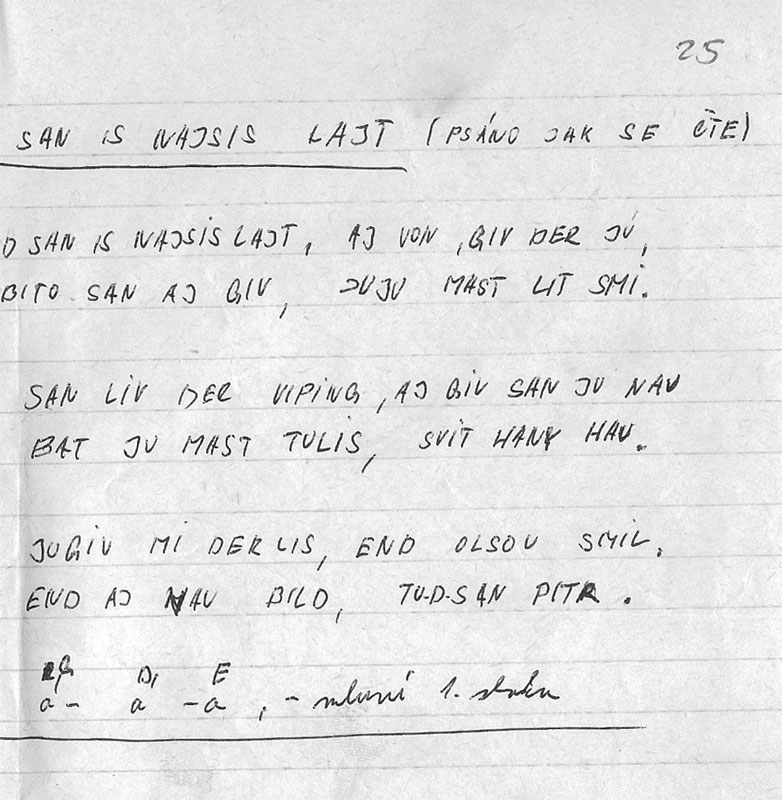 25
SAN IS NAJSIS LAJT (PSÁNO JAK SE ČTE)
D SAN IS NAJSIS LAJT, AJ VON, GIV DER JÚ,
BITO SAN AJ GIV, JUJU MAST LIT SMÍ.
SAN LIV DER VIPING, AJ GIV SAN JU NAU
BAT JU MAST TULIS, SVÍT HANY HAU.
JUGIV MÍ DER LIS, END OLSOU SMIL.
END AJ NAU BILD, TU-D-SAN PITR.
D, E
a - a - a, - mluví 1. sloku